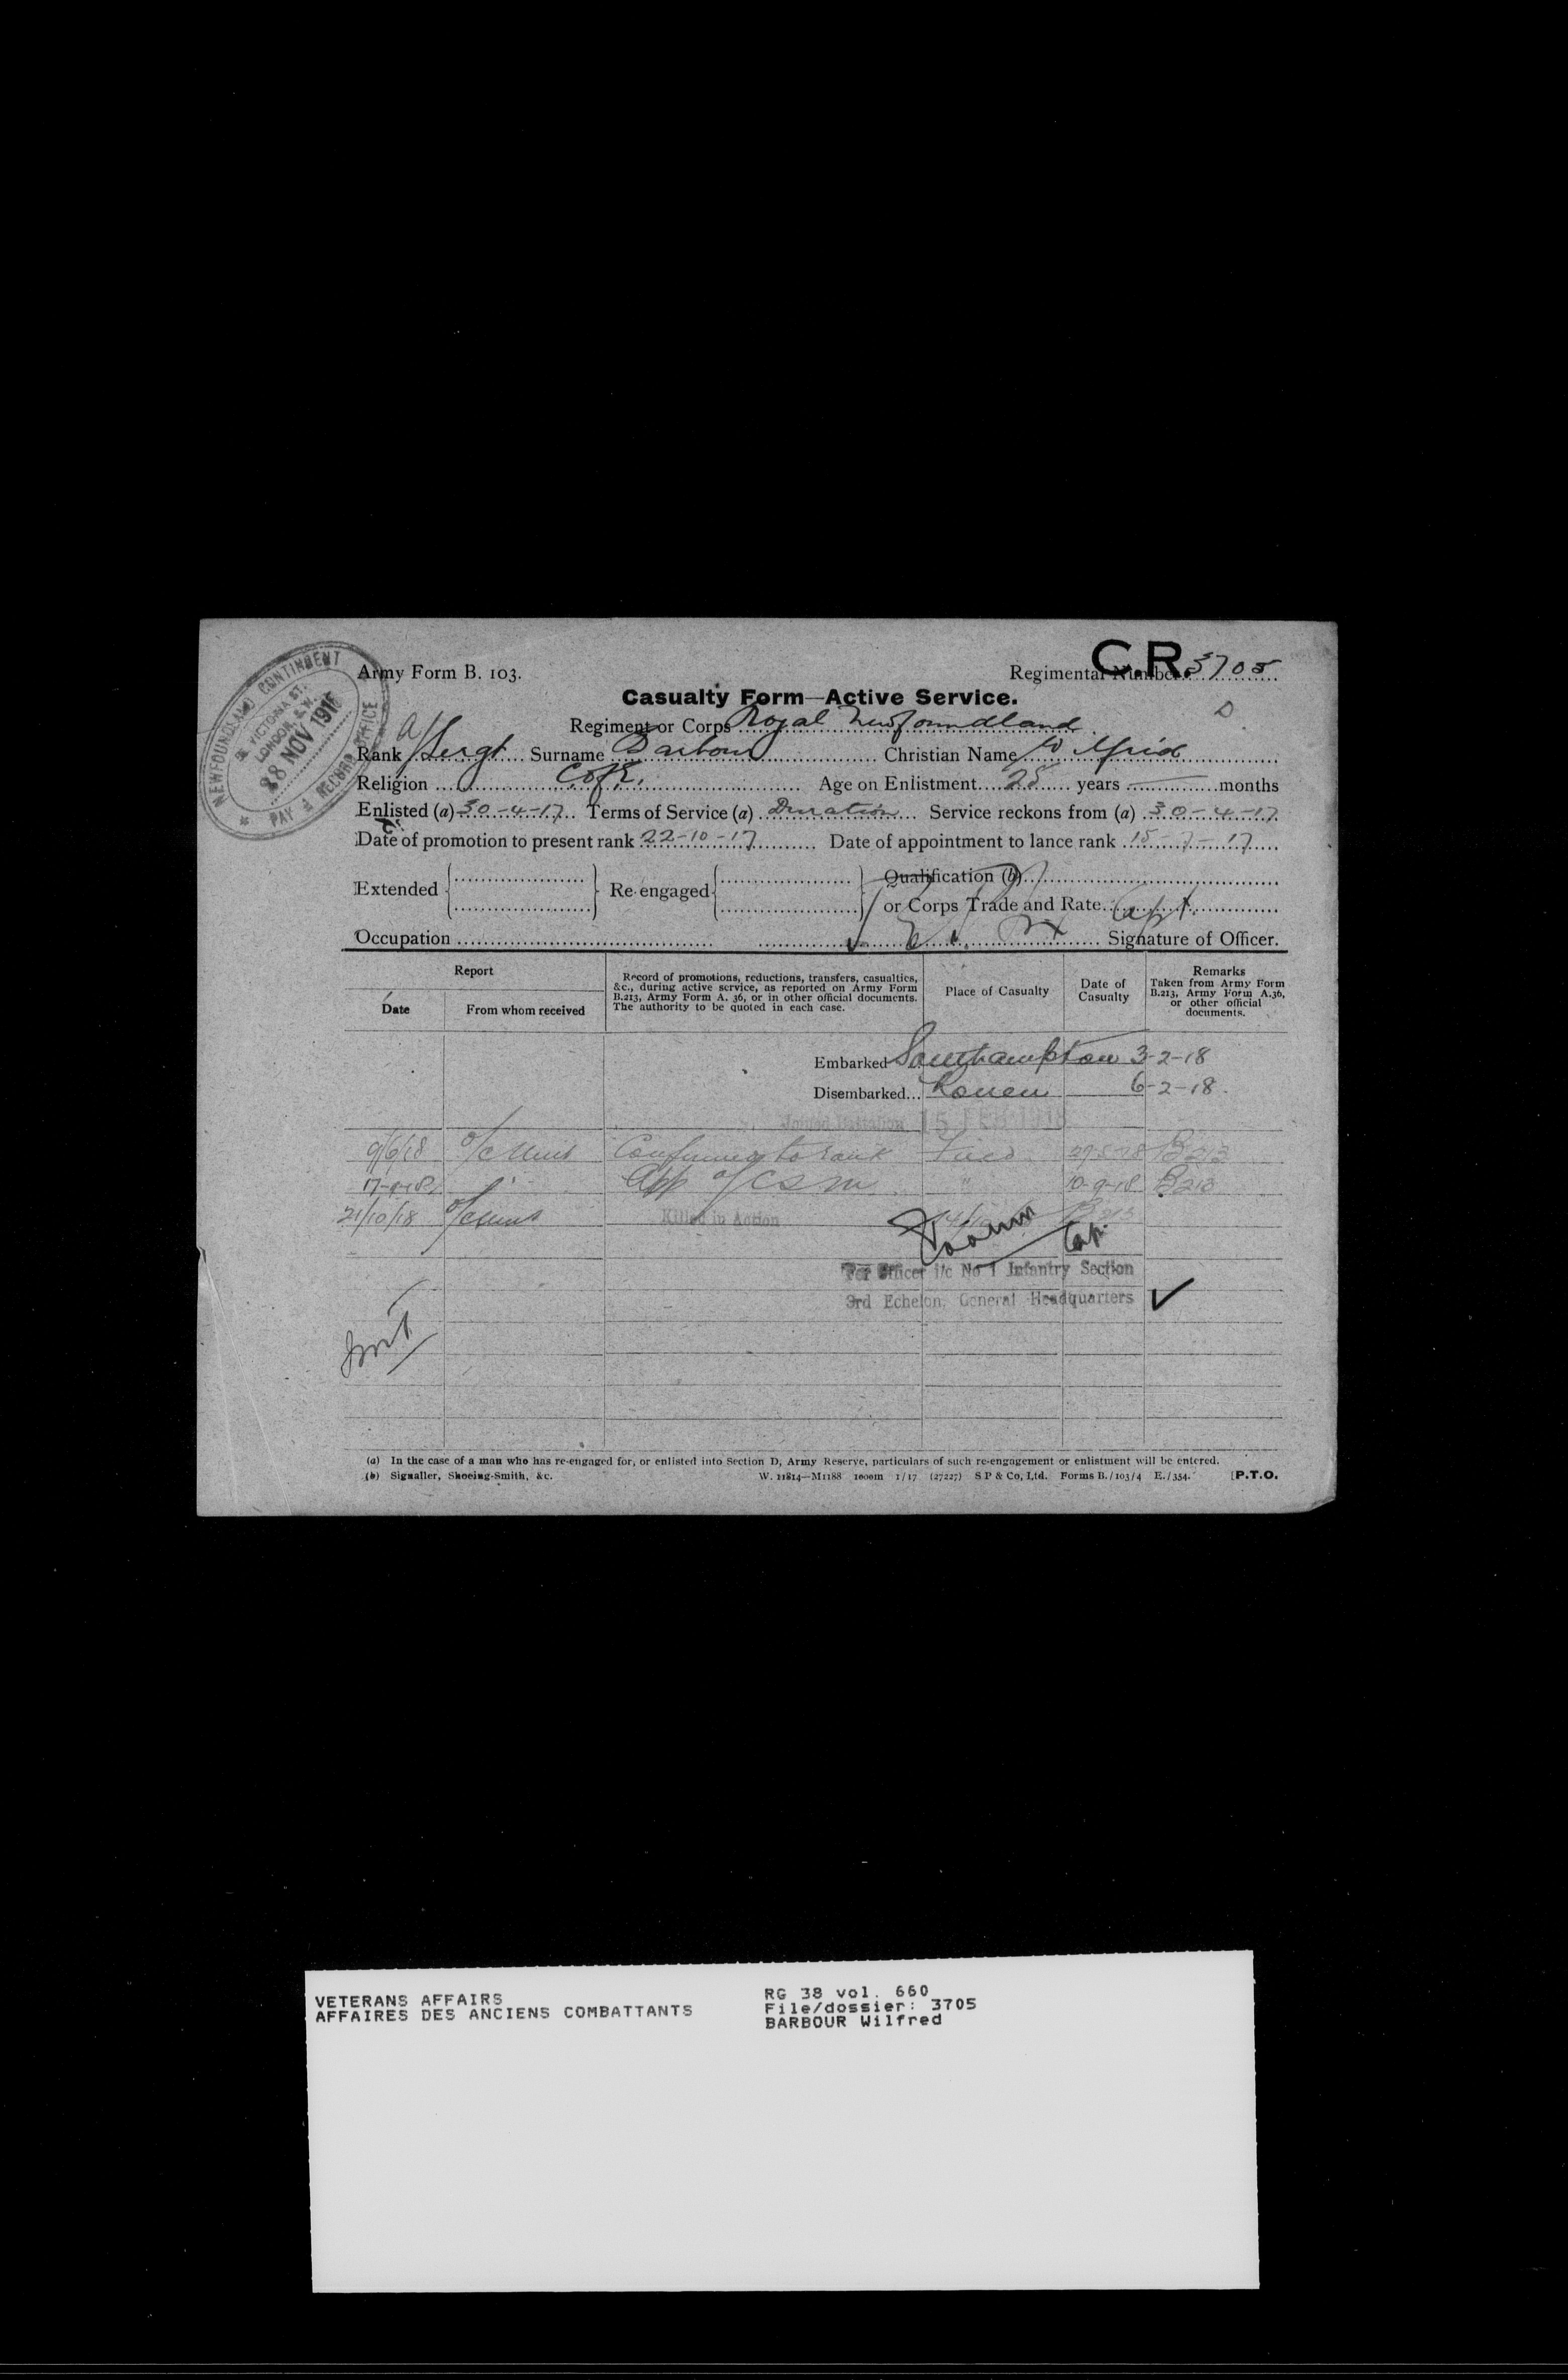 NEWFOUNDLAND CONTINGENT
VICTORIA ST.
LONDON, S.W.
28 NOV 1918
PAY & RECORD OFFICE
Army Form B. 103.
C.R.
Regimental Number 3705
Casualty Form—Active Service.
D
Regiment or Corps Royal Newfoundland
Rank A/Sergt Surname Barbour Christian Name Wilfrid
Religion C of E. Age on Enlistment 25 years — months
Enlisted (a) 30-4-17 Terms of Service (a) Duration Service reckons from (a) 30-4-17
Date of promotion to present rank 22-10-17 Date of appointment to lance rank 15-7-17
Extended Re-engaged Qualification (b)
or Corps Trade and Rate
Capt.
Occupation Signature of Officer.
Report
Date
From whom received
Record of promotions, reductions, transfers, casualties, &c., during active service, as reported on Army Form B.213, Army Form A. 36, or in other official documents. The authority to be quoted in each case.
Place of Casualty
Date of Casualty
Remarks
Taken from Army Form B.213, Army Form A.36, or other official documents.
Embarked Southampton 3-2-18
Disembarked... Rouen 6-2-18.
Joined Battalion 15 FEB 1918
9/6/18 O/c Unit Confirmed to rank Field B213
App a/CSM " 10-9-18 B213
21/10/18 O/c Unit Killed in Action 14/10 B213
Capt
For Officer i/c No 1 Infantry Section
3rd Echelon, General Headquarters
(a) In the case of a man who has re-engaged for, or enlisted into Section D, Army Reserve, particulars of such re-engagement or enlistment will be entered.
(b) Signaller, Shoeing-Smith, &c. W. 11814—M1188 1000m 1/17 (27227) S P & Co, Ltd. Forms B./103/4 E./354. [P.T.O.
VETERANS AFFAIRS
AFFAIRES DES ANCIENS COMBATTANTS
RG 38 vol. 660
File/dossier: 3705
BARBOUR Wilfred